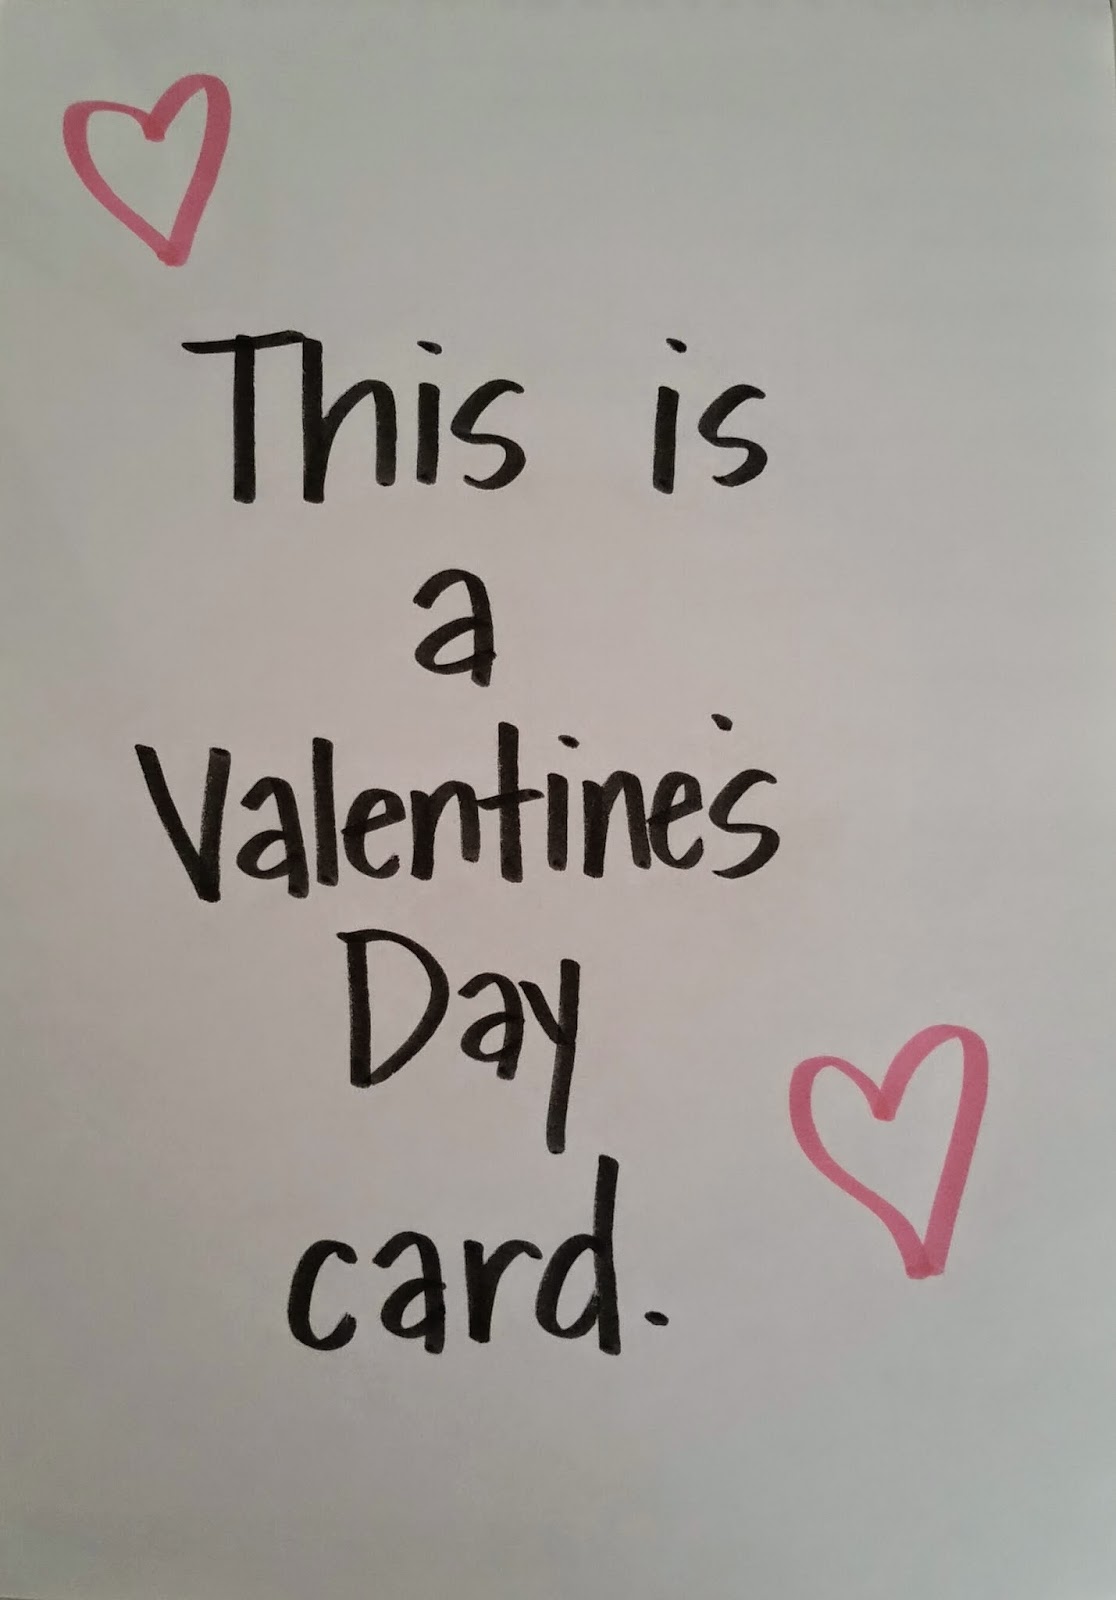 This is
a
Valentine's
Day
card.